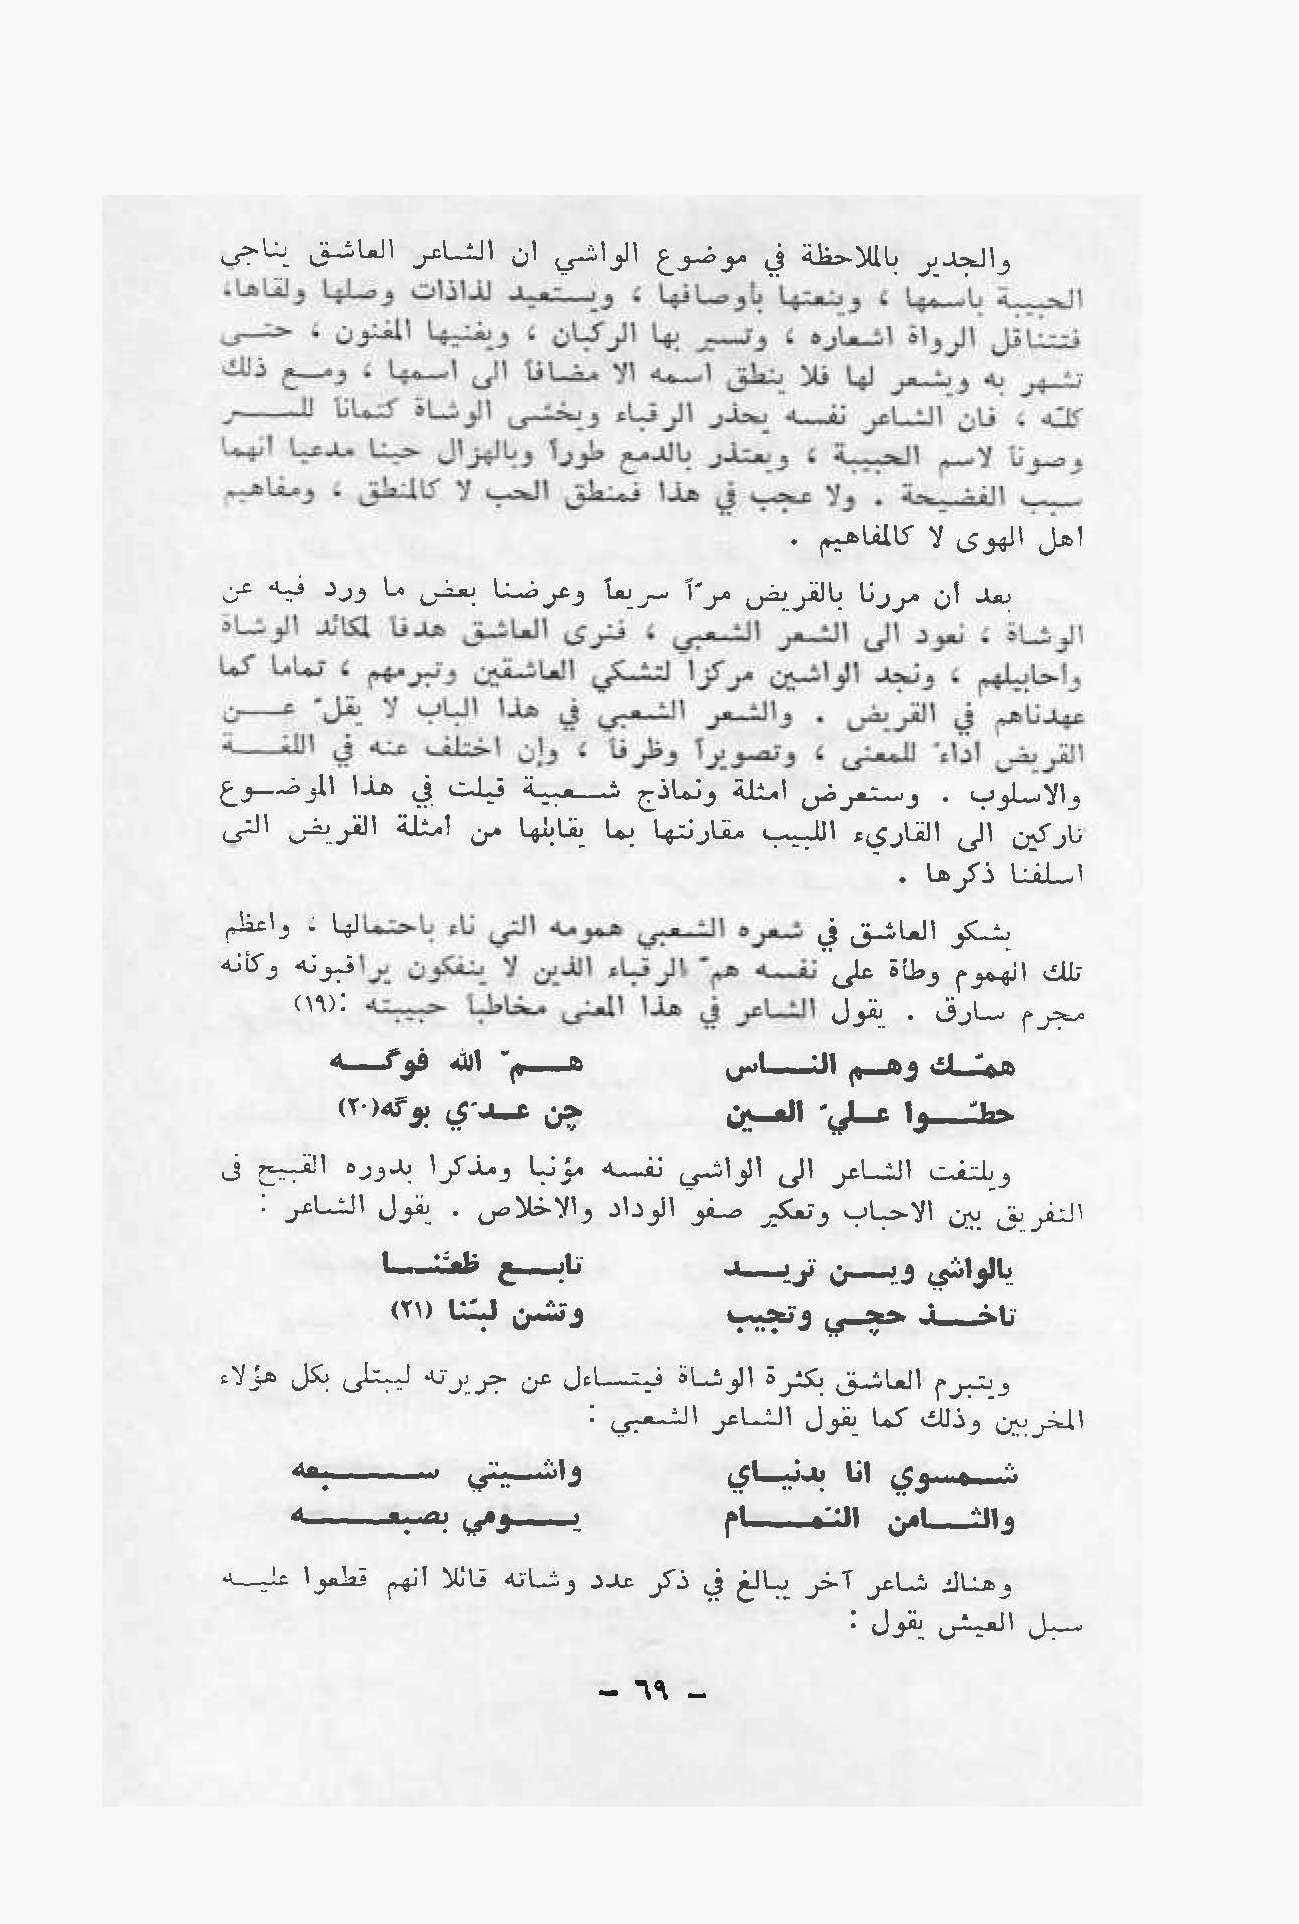 والجدير بالملاحظة في موضوع الواشي ان الشاعر العاشق يناجى
الحبيبة باسمها ، وينعتها بأوصافها ، ويستعيد لذاذات وصلها ولقاها،
فتتناقل الرواة اشعاره ، وتسير بها الركبان ، ويغنيها المغنون ، حتى
تشهر به ويشعر لها فلا ينطق اسمه الا مضافاً الى اسمها ، ومع ذلك
كلّه ، فان الشاعر نفسه يحذر الرقباء ويخشى الوشاة كتماناً للسر
وصوناً لاسم الحبيبة ، ويعتذر بالدمع طوراً وبالهزال حينا مدعيا انهما
سبب الفضيحة . ولا عجب في هذا فمنطق الحب لا كالمنطق ، ومفاهيم
اهل الهوى لا كالمفاهيم .
بعد أن مررنا بالقريض مرّاً سريعاً وعرضنا بعض ما ورد فيه عن
الوشاة ، نعود الى الشعر الشعبي ، فنرى العاشق هدفاً لمكائد الوشاة
واحابيلهم ، ونجد الواشين مركزا لتشكي العاشقين وتبرمهم ، تماما كما
عهدناهم في القريض . والشعر الشعبي في هذا الباب لا يقلّ عن
القريض اداءً للمعنى ، وتصويراً وظرفاً ، وإن اختلف عنه في اللغة
والاسلوب . وستعرض امثلة ونماذج شعبية قيلت في هذا الموضوع
تاركين الى القاريء اللبيب مقارنتها بما يقابلها من أمثلة القريض التى
اسلفنا ذكرها .
يشكو العاشق في شعره الشعبي همومه التي ناء باحتمالها ، واعظم
تلك الهموم وطأة على نفسه همّ الرقباء الذين لا ينفكون يراقبونه وكأنه
مجرم سارق . يقول الشاعر في هذا المعنى مخاطباً حبيبته :(١٩)
همّك وهم الناس هـمّ الله فوگه
حطّوا عليّ العين چن عدّي بوگه(٢٠)
ويلتفت الشاعر الى الواشي نفسه مؤنبا ومذكرا بدوره القبيح فى
التفريق بين الاحباب وتعكير صفو الوداد والاخلاص . يقول الشاعر :
يالواشي وين تريد تابع ظعنّا
تاخذ حچي وتجيب وتشن لبّنا (٢١)
ويتبرم العاشق بكثرة الوشاة فيتساءل عن جريرته ليبتلى بكل هؤلاء
المخربين وذلك كما يقول الشاعر الشعبي :
شمسوي انا بدنياي واشيتي سبعه
والثامن النمّام يومي بصبعه
وهناك شاعر آخر يبالغ في ذكر عدد وشاته قائلا انهم قطعوا عليه
سبل العيش يقول :
– ٦٩ –